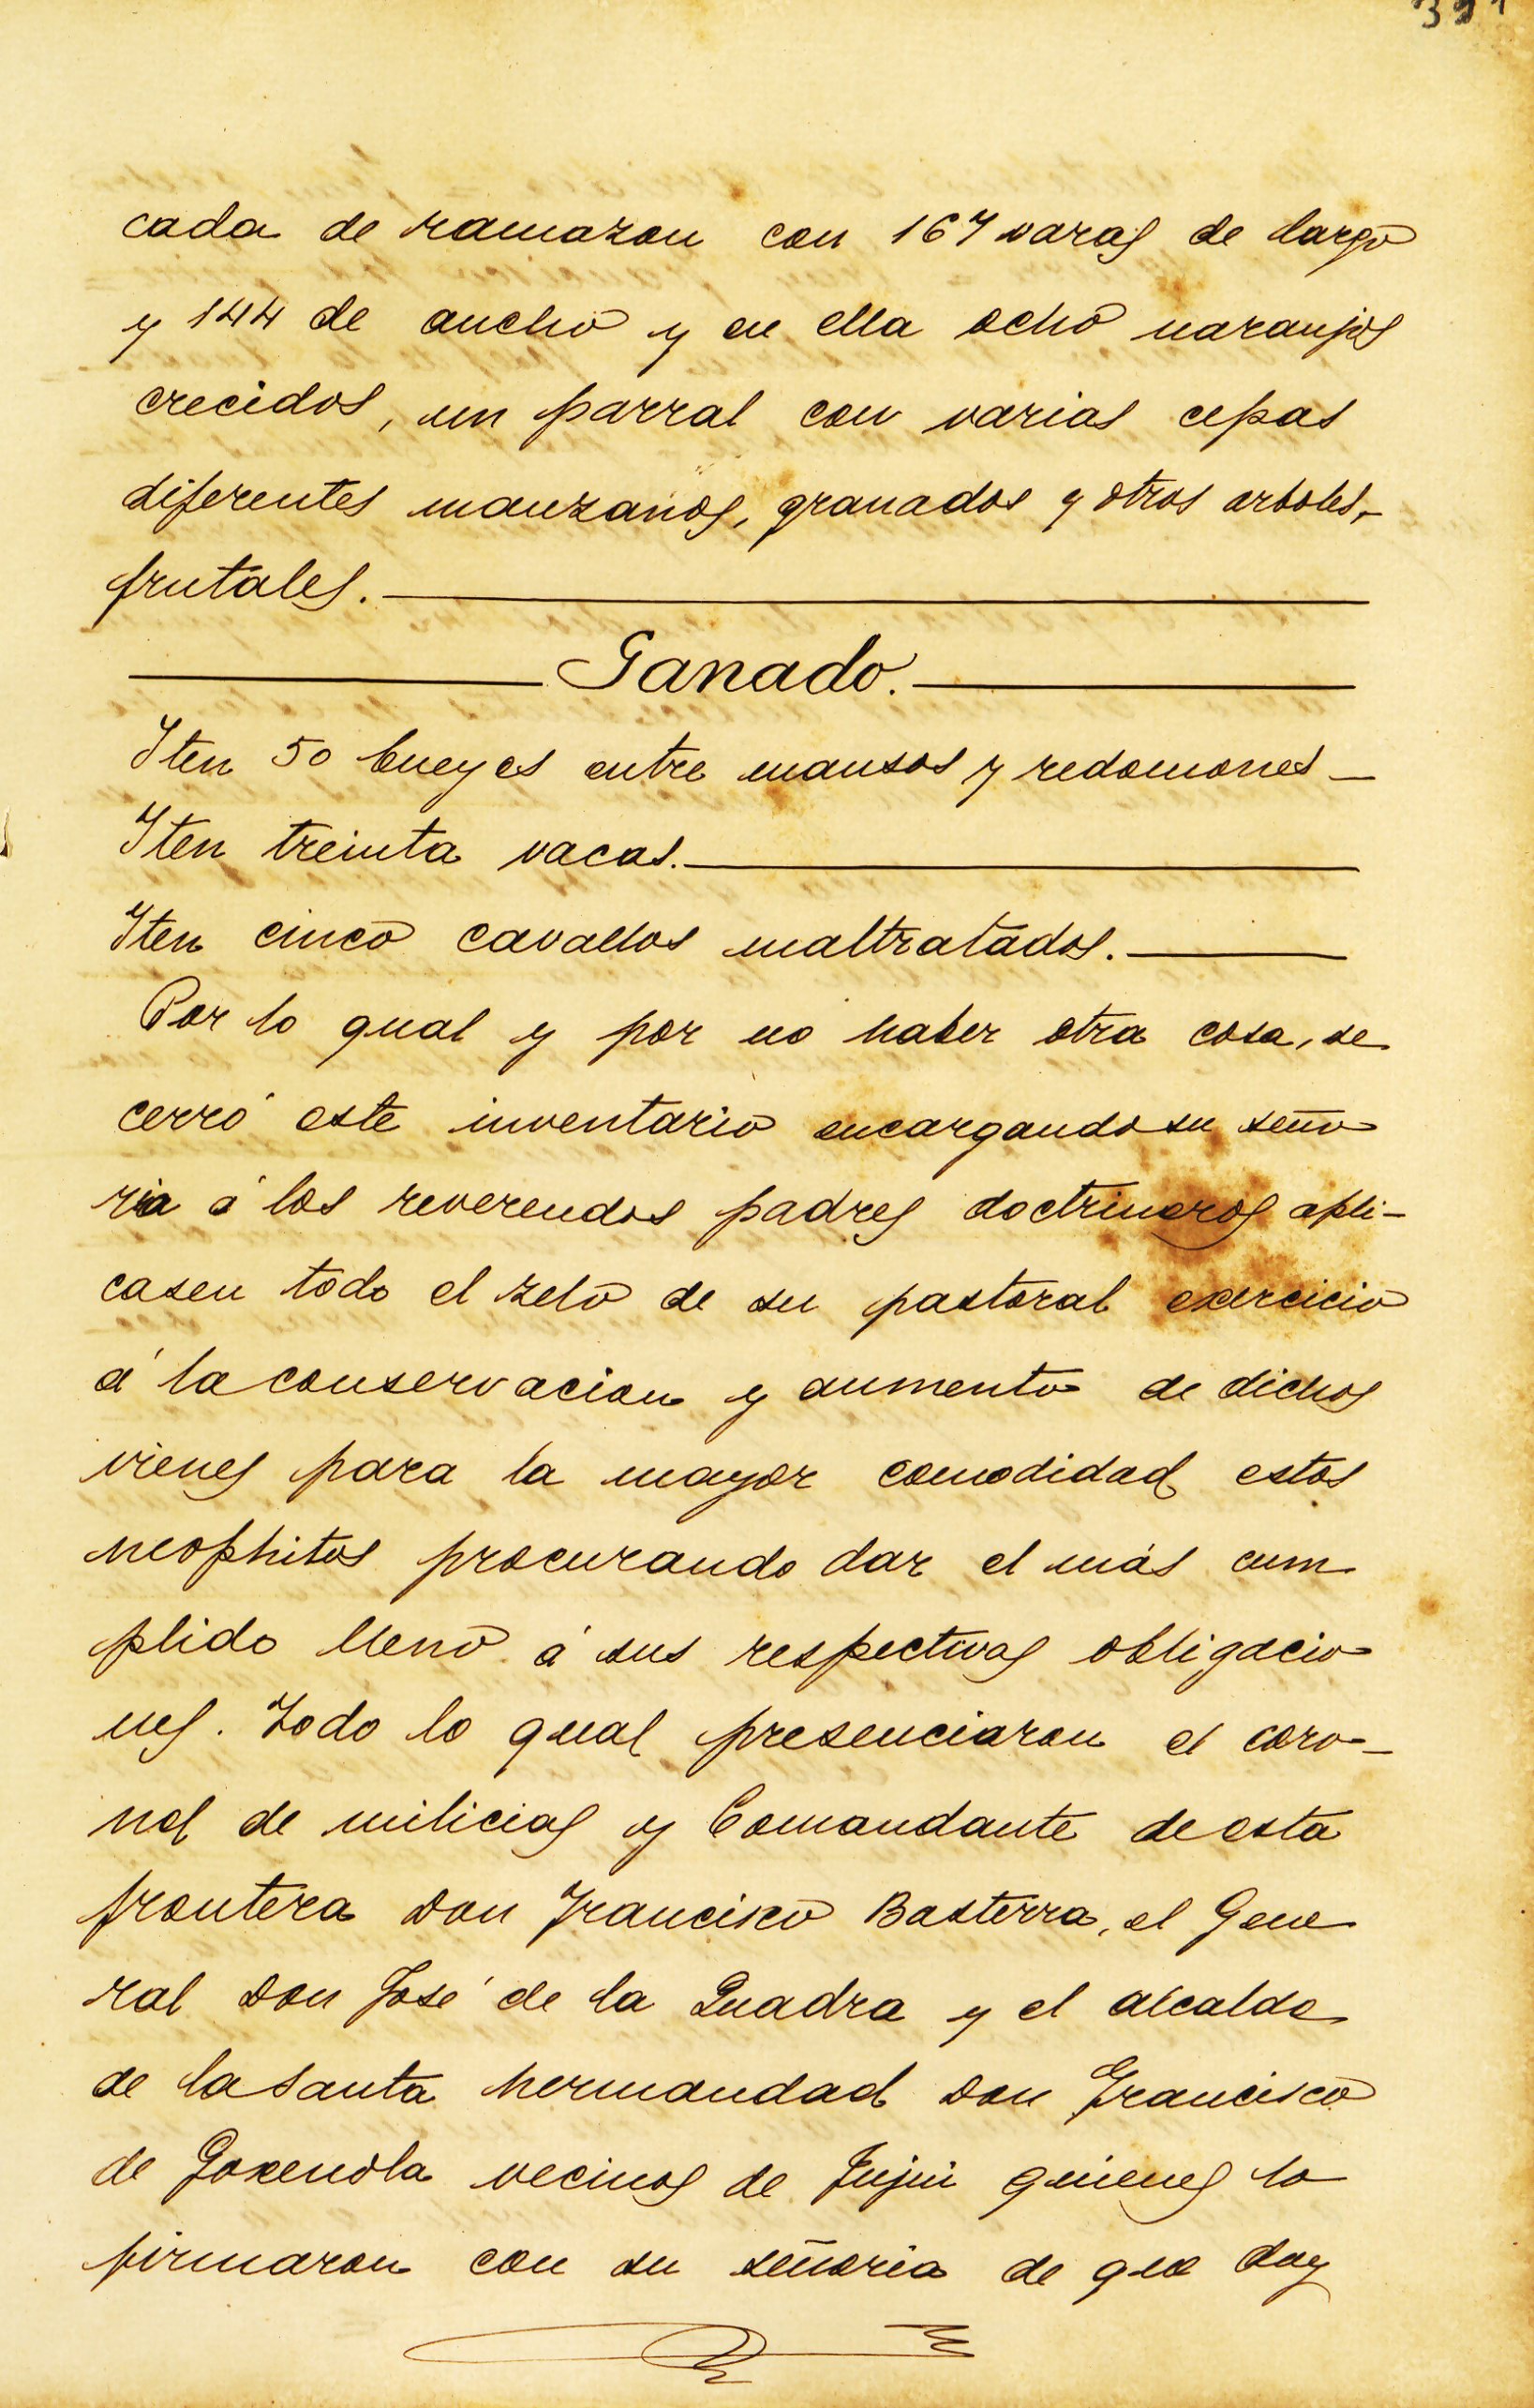 cada de ramazon con 167 varas de largo
y 144 de ancho y en ella ocho naranjos
crecidos, un parral con varias cepas
diferentes manzanos, granados y otros arboles,-
frutales.
Ganado.
Iten 50 bueyes entre mansos y redomones
Iten treinta vacas.
Iten cinco cavallos maltratados.
Por lo qual y por no haber otra cosa, se
cerró este inventario encargando su seño
ria á los reverendos padres doctrineros apli-
casen todo el zelo de su pastoral exercicio
á la conservacion y aumento de dichos
vienes para la mayor comodidad estos
neophitos procurando dar el más cum
plido lleno á sus respectivas obligacio
nes. Todo lo qual presenciaron el coro-
nel de milicias y Comandante de esta
frontera Don Francisco Basterra, el Gene
ral Don José de la Quadra y el alcalde
de la santa hermandad Don Francisco
de Goxenola vecinos de Jujui quienes lo
firmaron con su señoria de que doy